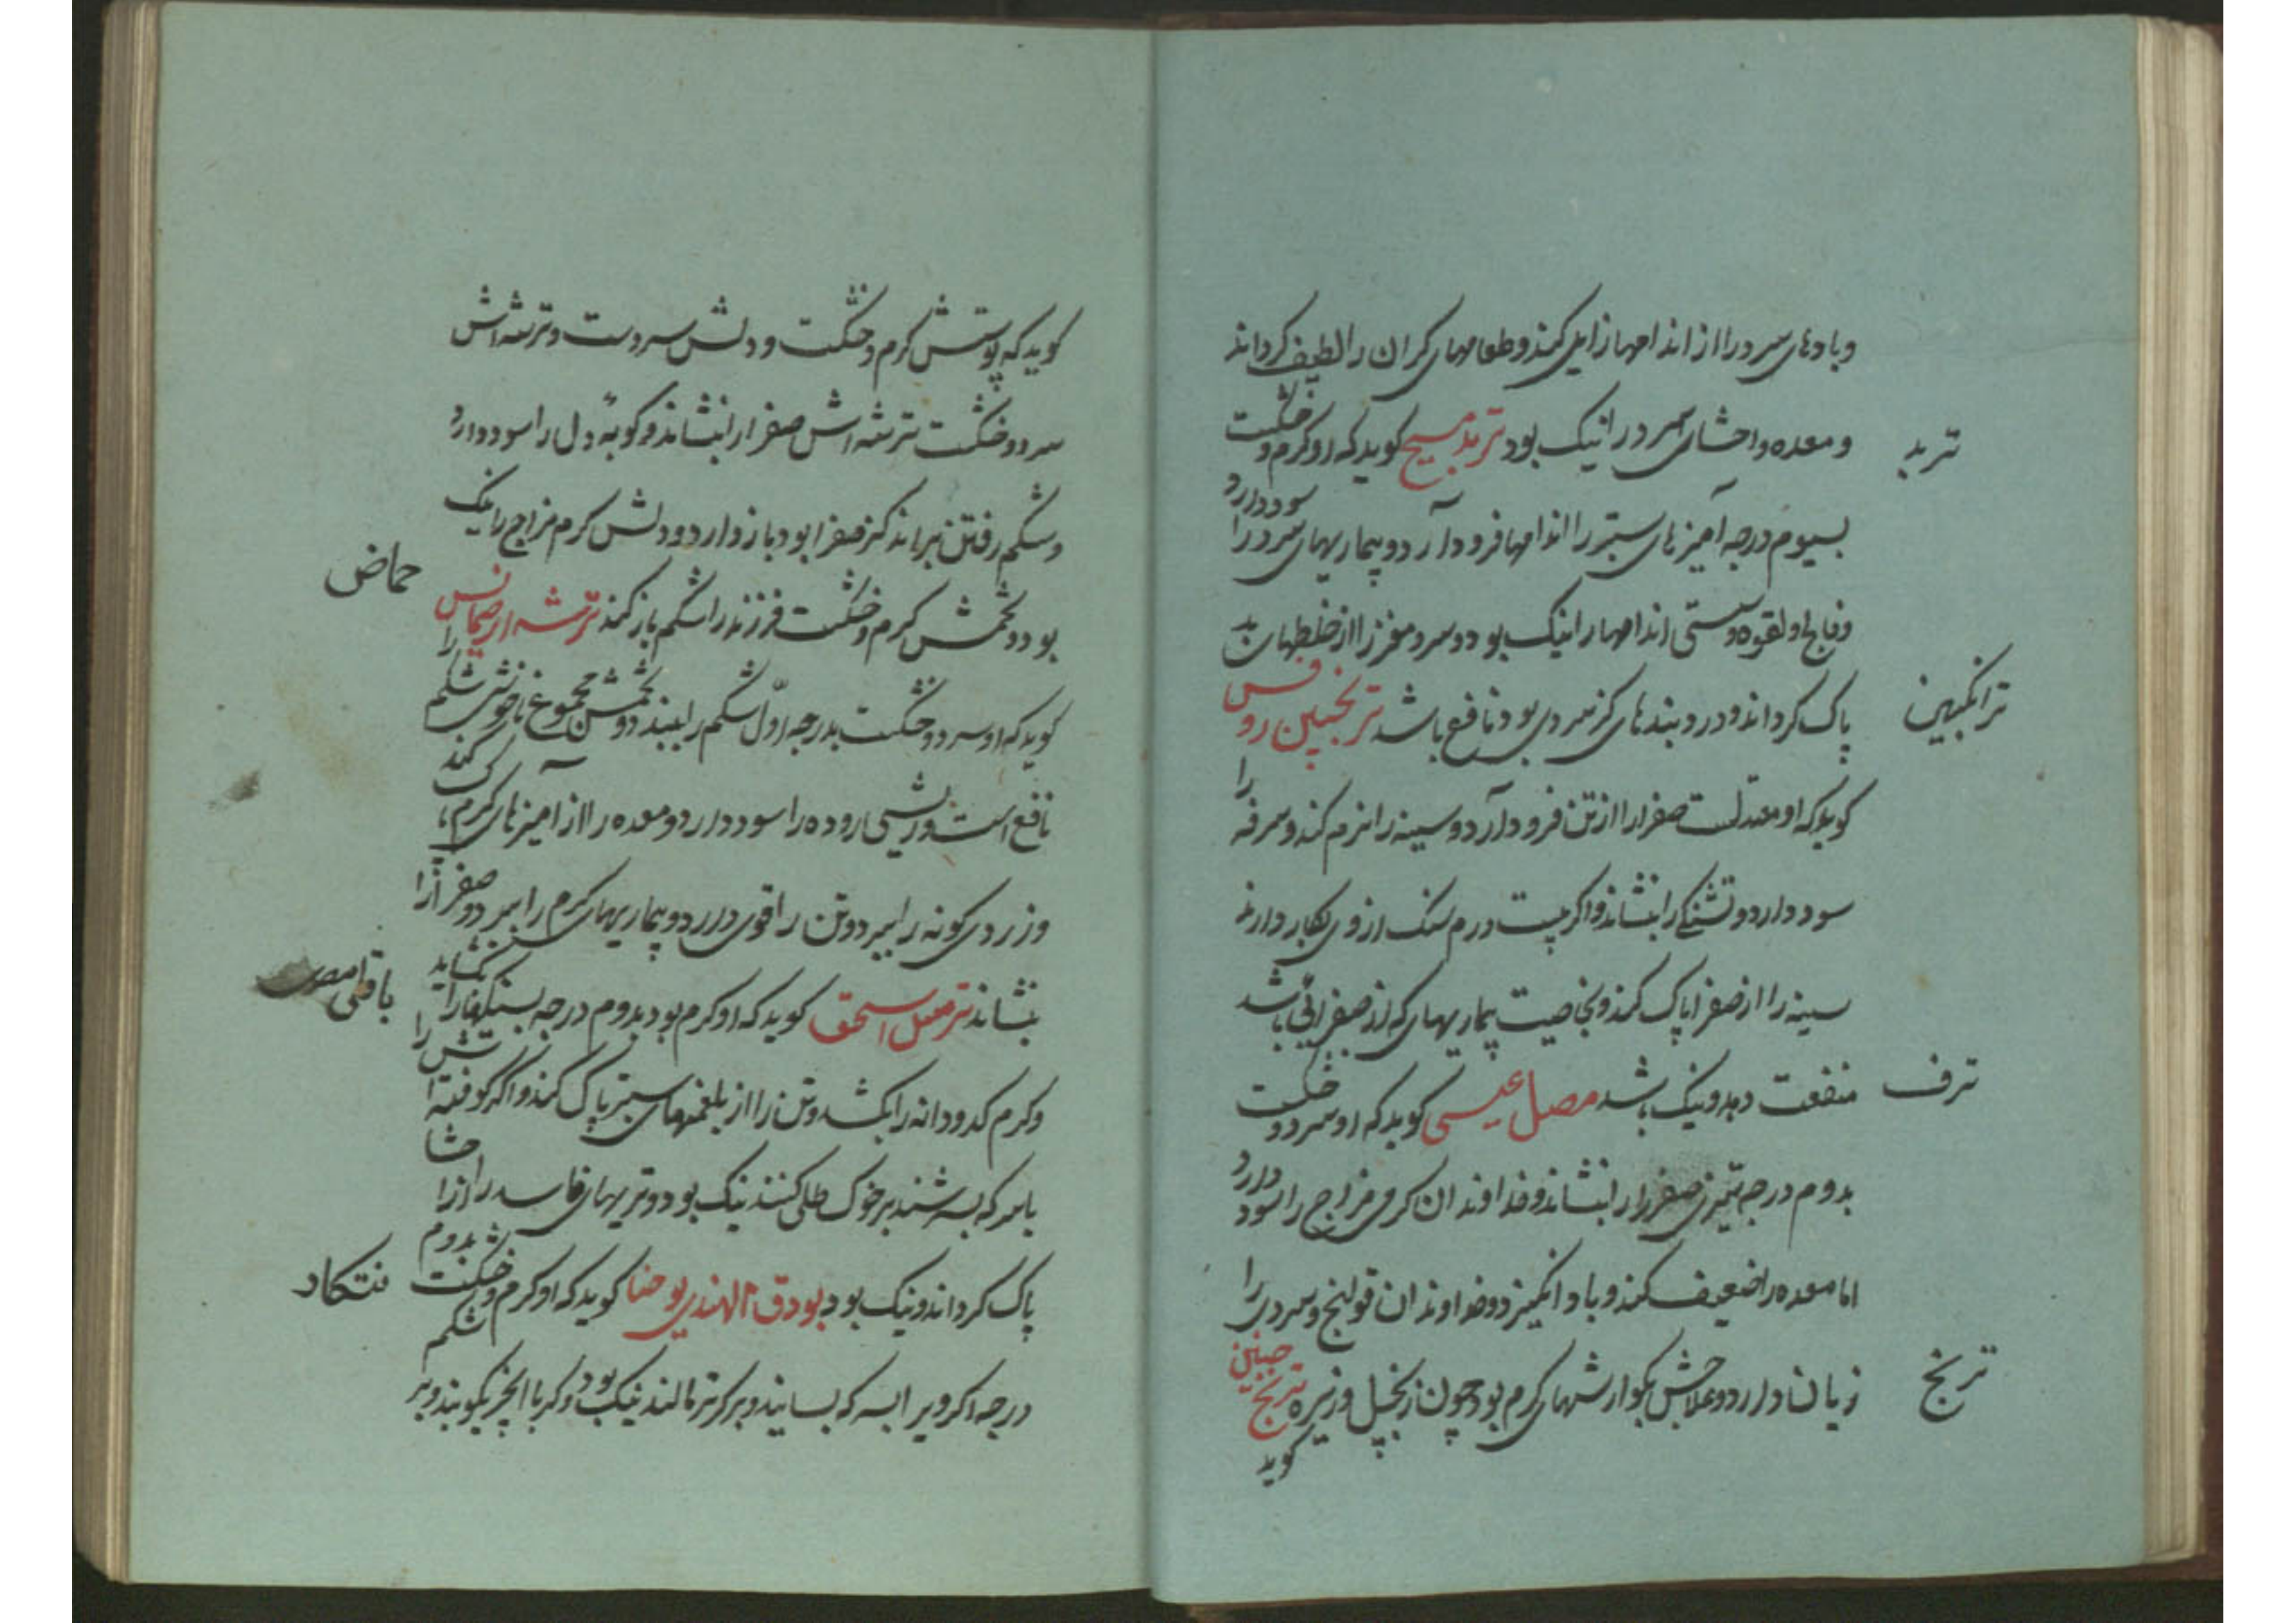 وبادهای سرد را از اندامها زایل کند و طعامهای کران را لطیف کرداند
ترید
و معده و احشای سرد را نیک بود تربد مسیح کوید که او کرم و خشکست
بسیوم درجه آمیزهای ستبر را از اندامها فرود آرد و بیماریهای سرد را سود دارد
و فالج و لقوه و سستی اندامها را نیک بود و سر و مغز را از خلطهای بد
ترانکبین
پاک کرداند و درد بندهای کز سردی بود نافع باشد ترنجبین روفس
کوید که او معتدلست صفرا را از تن فرود آرد و سینه را نرم کند و سرفه را
سود دارد و تشنکی را بنشاند و اکر بیست درم سنک از وی بکار دارند
سینه را از صفرا پاک کند و بخاصیت بیماریهای که از صفرائی باشد
ترف
منفعت دهد و نیک باشد مصل عیسی کوید که او سرد و خشکست
بدوم درجه تیزی صفرا را بنشاند و خداوندان کرمی مزاج را سود دارد
اما معده را ضعیف کند و باد انکیزد و خداوندان قولنج و سردی را
ترنج
زیان دارد و علاجش بکوارشهای کرم بود چون زنجبیل و زیره ترنج حبین
کوید
کوید که پوستش کرم و خشکست و دلش سردست و ترشه اش
سرد و خشکست ترشه اش صفرا را بنشاند و کوبهٔ دل را سود دارد
و شکم رفتن ببراند کز صفرا بود باز دارد و دلش کرم مزاج را نیک
حماض
بود و تخمش کرم و خشکست فرزند را شکم باز کند ترشه
کوید که او سرد و خشکست بدرجه اول شکم را ببندد و تخمش شکم کند
نافع است و ریشی روده را سود دارد و معده را از آمیزهای کرم
و زردی کونه را ببرد و تن را قوی دارد و بیماریهای کرم را ببرد و صفرا را
باقلی مصری
بنشاند ترمس اسحق کوید که او کرم بود بدوم درجه
و کرم کدودانه را بکشد و تن را از بلغمهای ستبر پاک کند و اکر کوفته
با سرکه بسرشند بر خوک طلی کنند نیک بود و تریهای فاسد را از
نتکاد
پاک کرداند و نیک بود بودق الهندی یوحنا کوید که او کرم و خشکست بدوم
درجه اکر ویرا بسرکه بسایند و بر کر تر مالند نیک بود